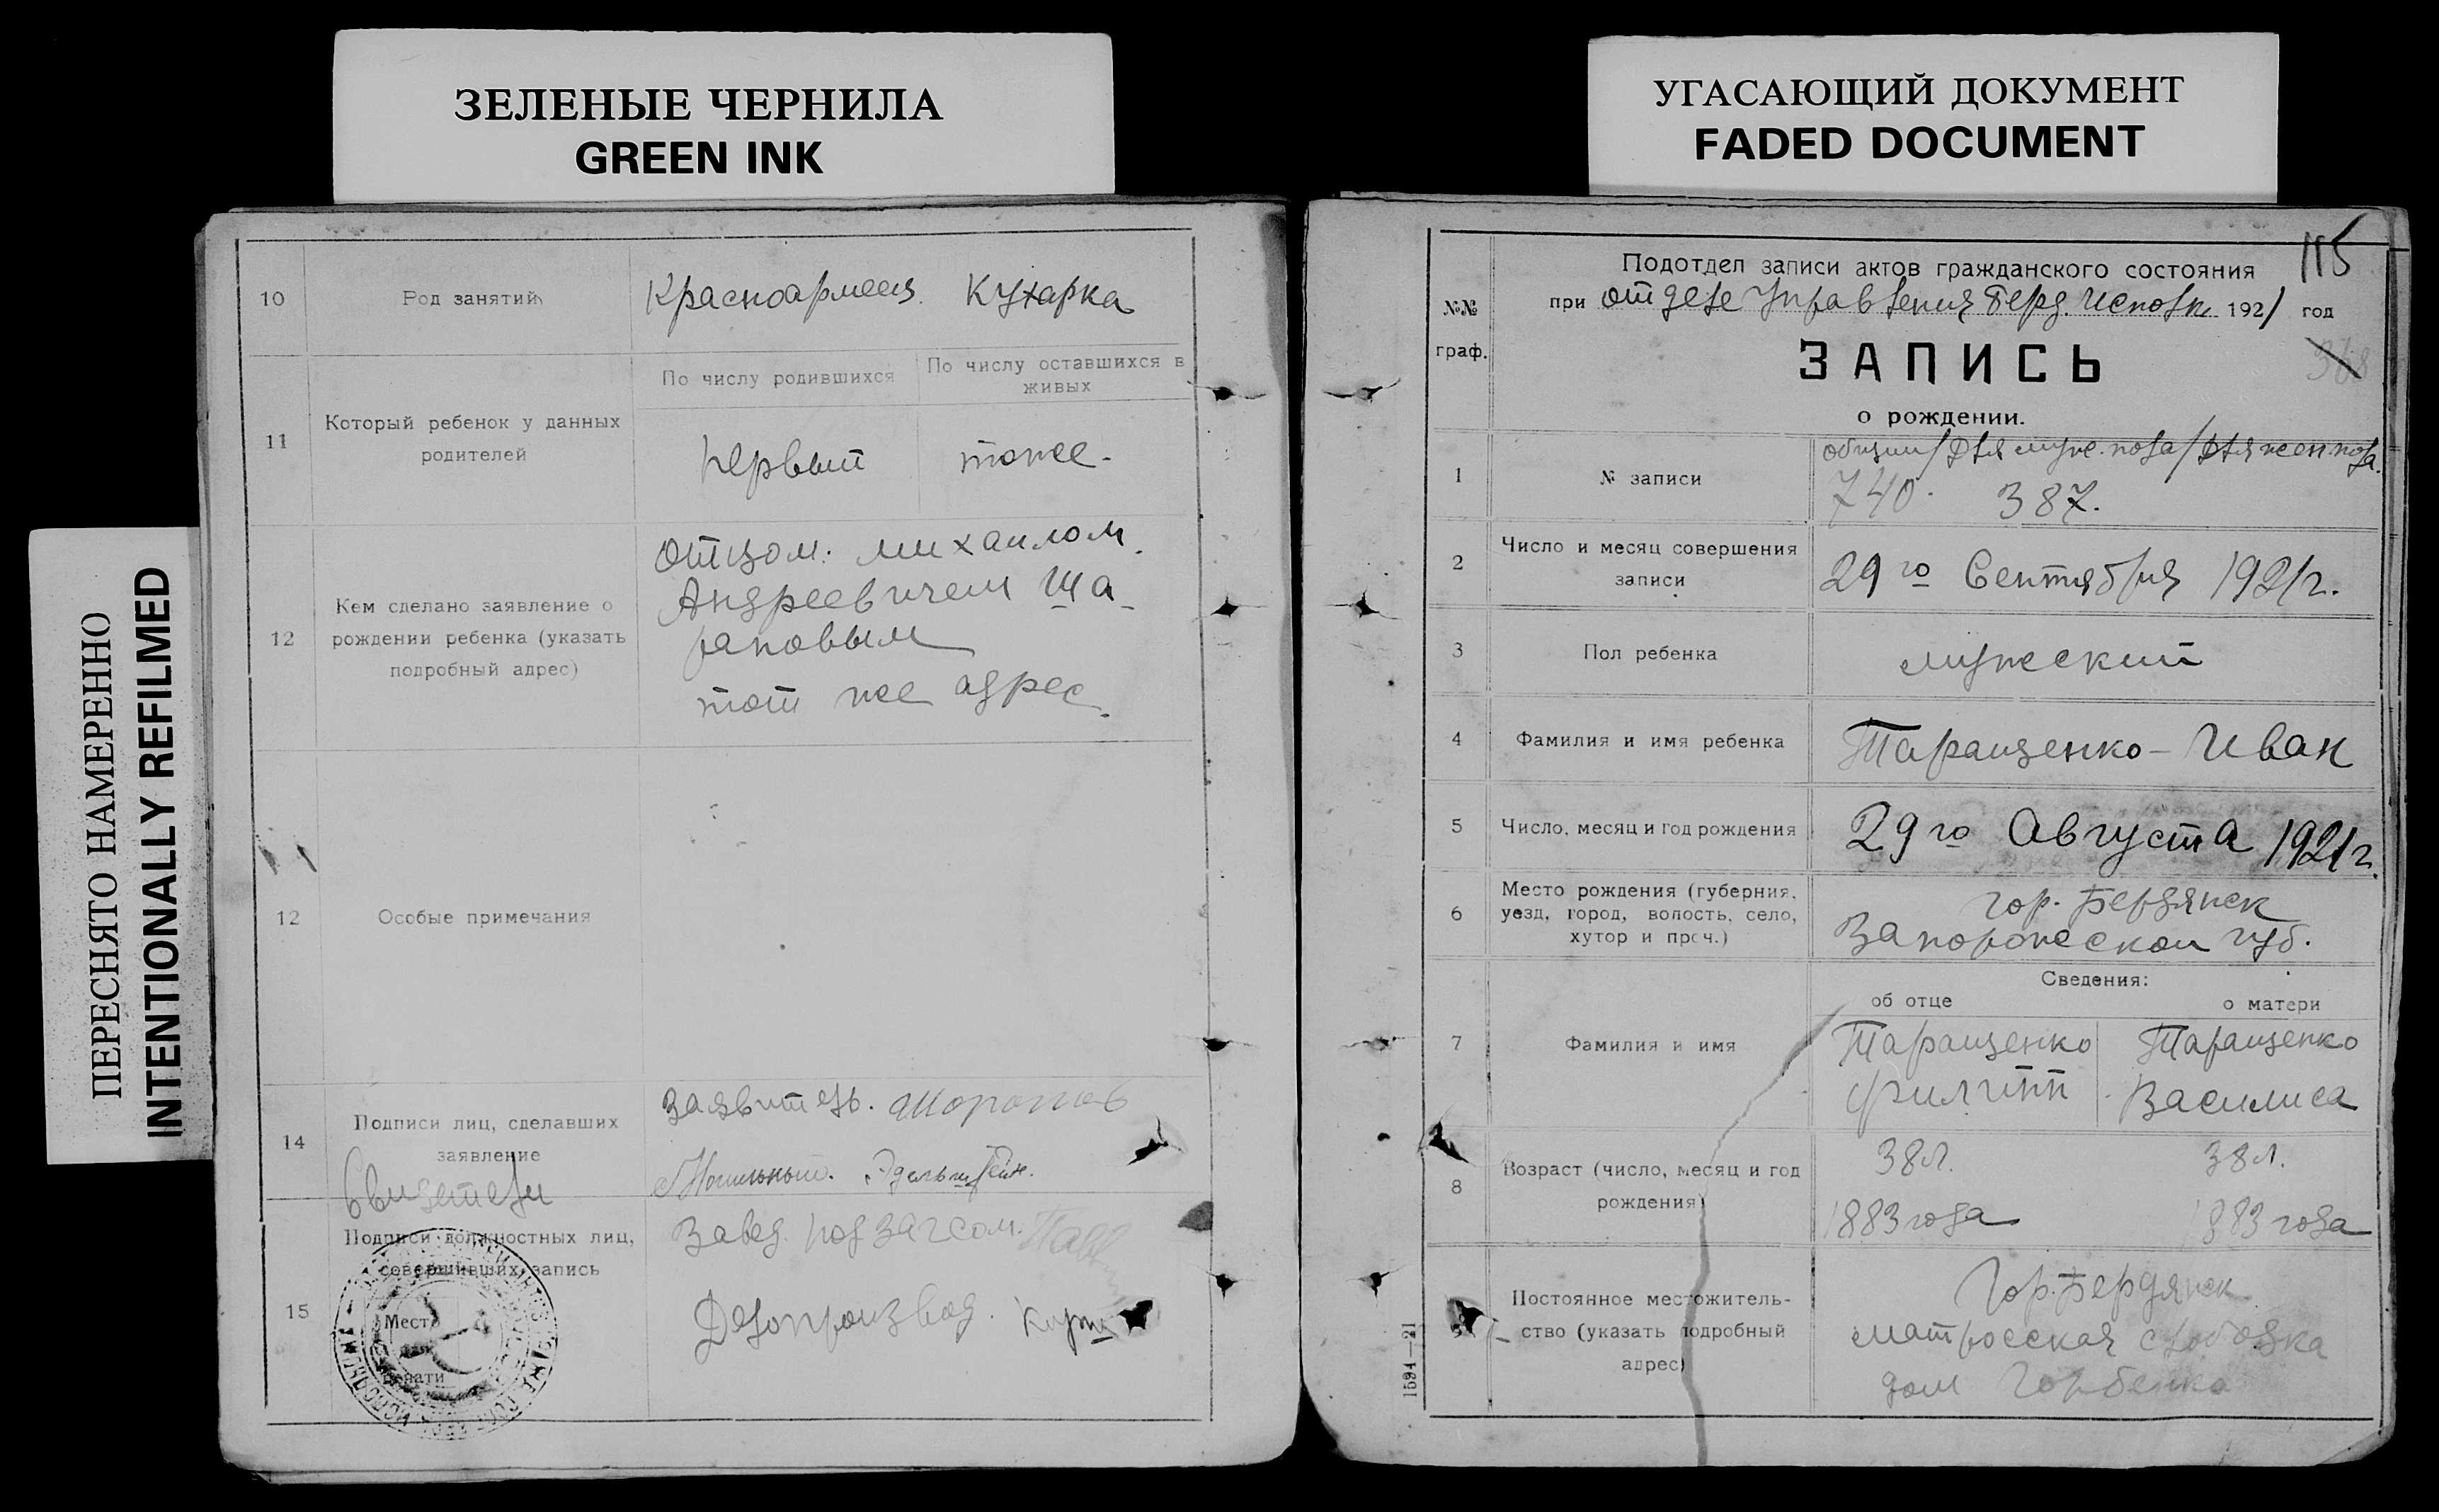 ЗЕЛЕНЫЕ ЧЕРНИЛА
GREEN INK
УГАСАЮЩИЙ ДОКУМЕНТ
FADED DOCUMENT
ПЕРЕСНЯТО НАМЕРЕННО
INTENTIONALLY REFILMED
10
Род занятий
Красноармеец. Кухарка
11
Который ребенок у данных
родителей
По числу родившихся
По числу оставшихся в
живых
первый
тоже.
12
Кем сделано заявление о
рождении ребенка (указать
подробный адрес)
отцом. михаилом.
Андреевичем Ша-
раповым
тот же адрес.
12
Особые примечания
14
Подписи лиц, сделавших
заявление
Свидетели
заявитель.
Эдельштейн.
15
Подписи должностных лиц,
совершивших запись
Место
печати
Завед. подзагсом.
Делопроизвод.
115
№№
граф.
Подотдел записи актов гражданского состояния
при отделе Управления Берд. Исполк. 1921 год
ЗАПИСЬ
368
о рождении.
1
№ записи
общий/для муж. пола/для жен. пола.
740. 387.
2
Число и месяц совершения
записи
29го Сентября 1921г.
3
Пол ребенка
мужеский
4
Фамилия и имя ребенка
Таращенко - Иван
5
Число, месяц и год рождения
29го Августа 1921г.
6
Место рождения (губерния,
уезд, город, волость, село,
хутор и проч.)
гор. Бердянск
Запорожской губ.
7
Фамилия и имя
Сведения:
об отце
о матери
Таращенко
Филипп
Таращенко
Василиса
8
Возраст (число, месяц и год
рождения)
38л.
38л.
1883 года
1883 года
9
Постоянное местожитель-
ство (указать подробный
адрес)
Гор. Бердянск
матросская слободка
дом Горбенко
1594—21